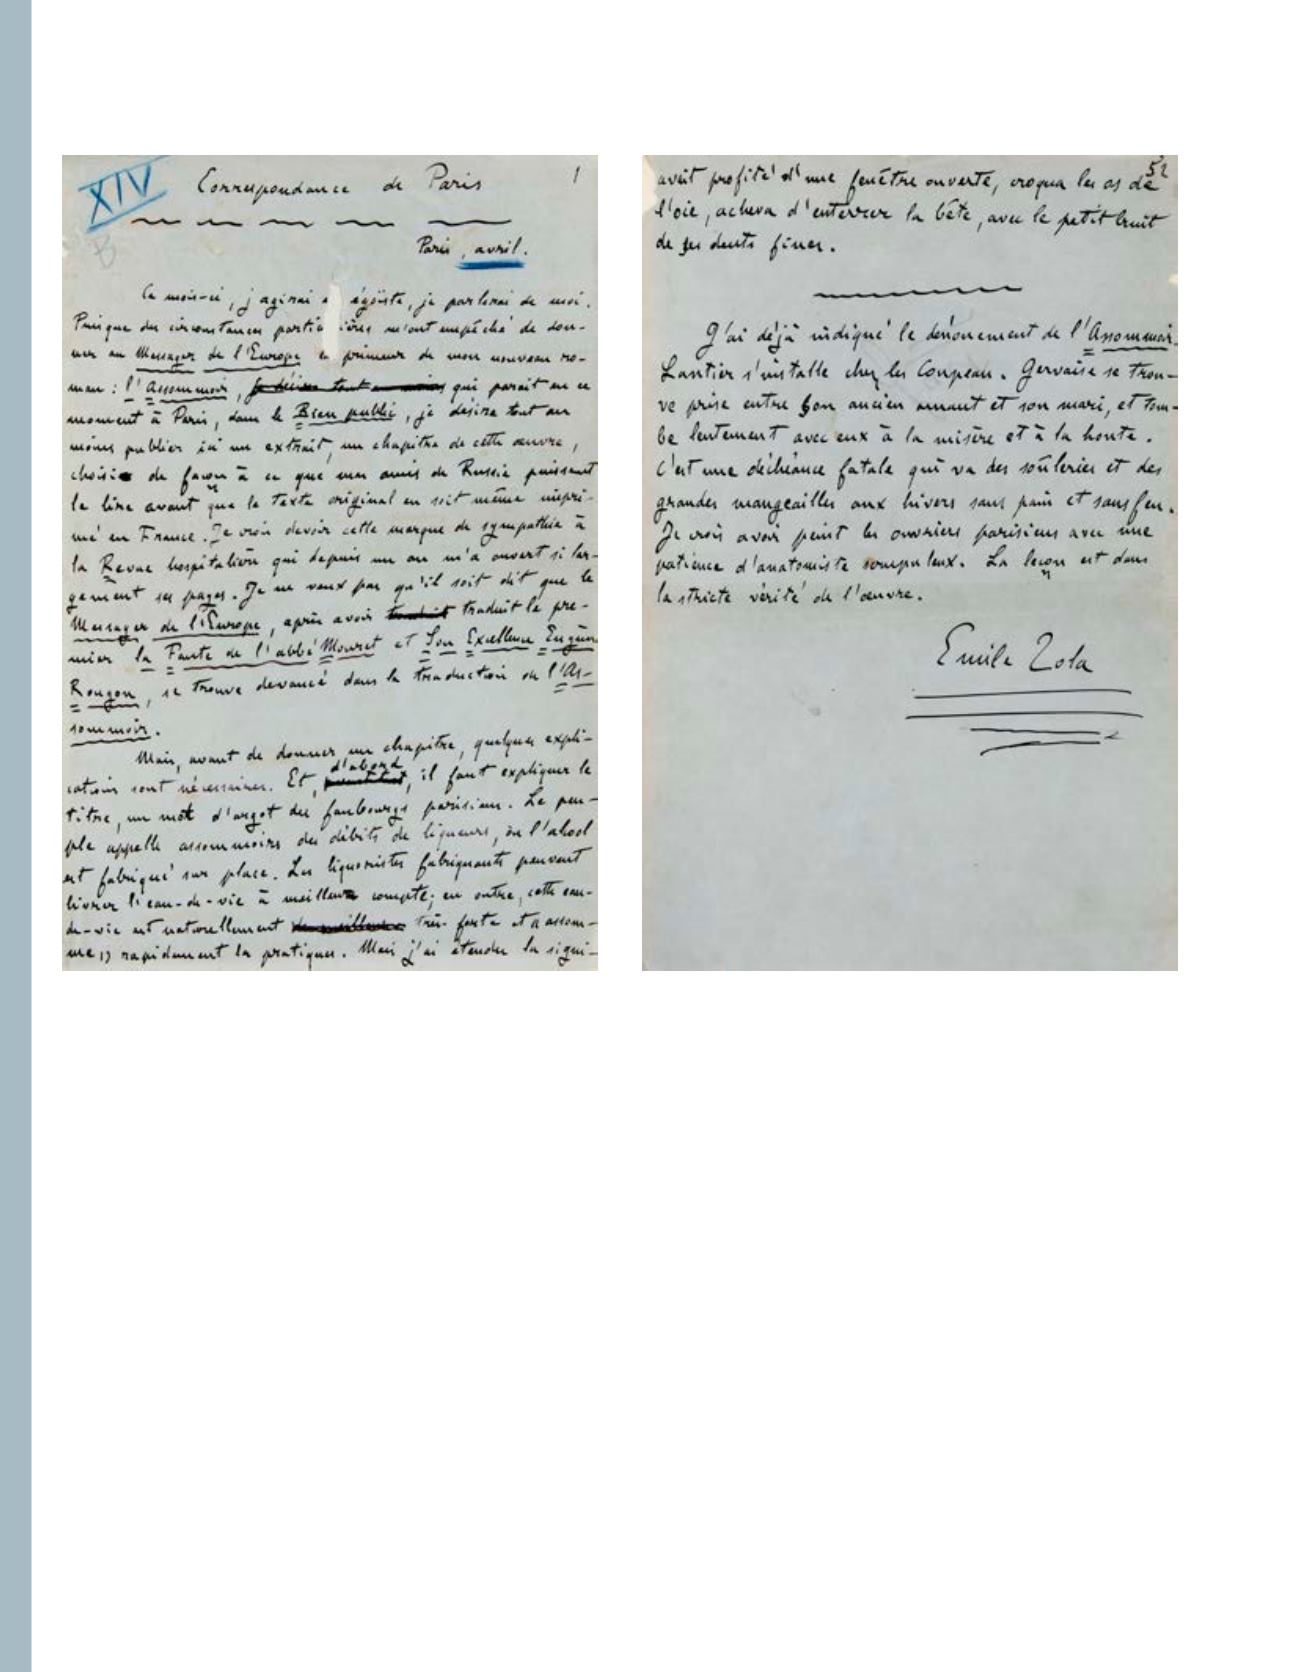 XIV
Correspondance de Paris
1
B
Paris, avril.
Ce mois-ci, j'agirai en égoïste, je parlerai de moi.
Puisque des circonstances particulières m'ont empêché de don-
ner au Messager de l'Europe la primeur de mon nouveau ro-
man : l'Assommoir, je désire tout au moins qui paraît en ce
moment à Paris, dans le Bien public, je désire tout au
moins publier ici un extrait, un chapitre de cette œuvre,
choisi de façon à ce que mes amis de Russie puissent
le lire avant que le texte original en soit même impri-
mé en France. Je crois devoir cette marque de sympathie à
la Revue hospitalière qui depuis un an m'a ouvert si lar-
gement ses pages. Je ne veux pas qu'il soit dit que le
Messager de l'Europe, après avoir traduit le pre-
mier la Faute de l'abbé Mouret et Son Excellence Eugène
Rougon, se trouve devancé dans la traduction de l'As-
sommoir.
Mais, avant de donner un chapitre, quelques expli-
cations sont nécessaires. Et, d'abord, il faut expliquer le
titre, un mot d'argot des faubourgs parisiens. Le peu-
ple appelle assommoirs des débits de liqueurs, où l'alcool
est fabriqué sur place. Les liquoristes fabriquants peuvent
livrer l'eau-de-vie à meilleur compte; en outre, cette eau-
de-vie est naturellement très forte et "assom-
me" rapidement les pratiques. Mais j'ai étendu la signi-
52
avait profité d'une fenêtre ouverte, croqua les os de
l'oie, acheva d'enterrer la bête, avec le petit bruit
de ses dents fines.
J'ai déjà indiqué le dénouement de l'Assommoir.
Lantier s'installe chez les Coupeau. Gervaise se trou-
ve prise entre son ancien amant et son mari, et tom-
be lentement avec eux à la misère et à la honte.
C'est une déchéance fatale qui va des soûleries et des
grandes mangeailles aux hivers sans pain et sans feu.
Je crois avoir peint les ouvriers parisiens avec une
patience d'anatomiste scrupuleux. La leçon est dans
la stricte vérité de l'œuvre.
Emile Zola